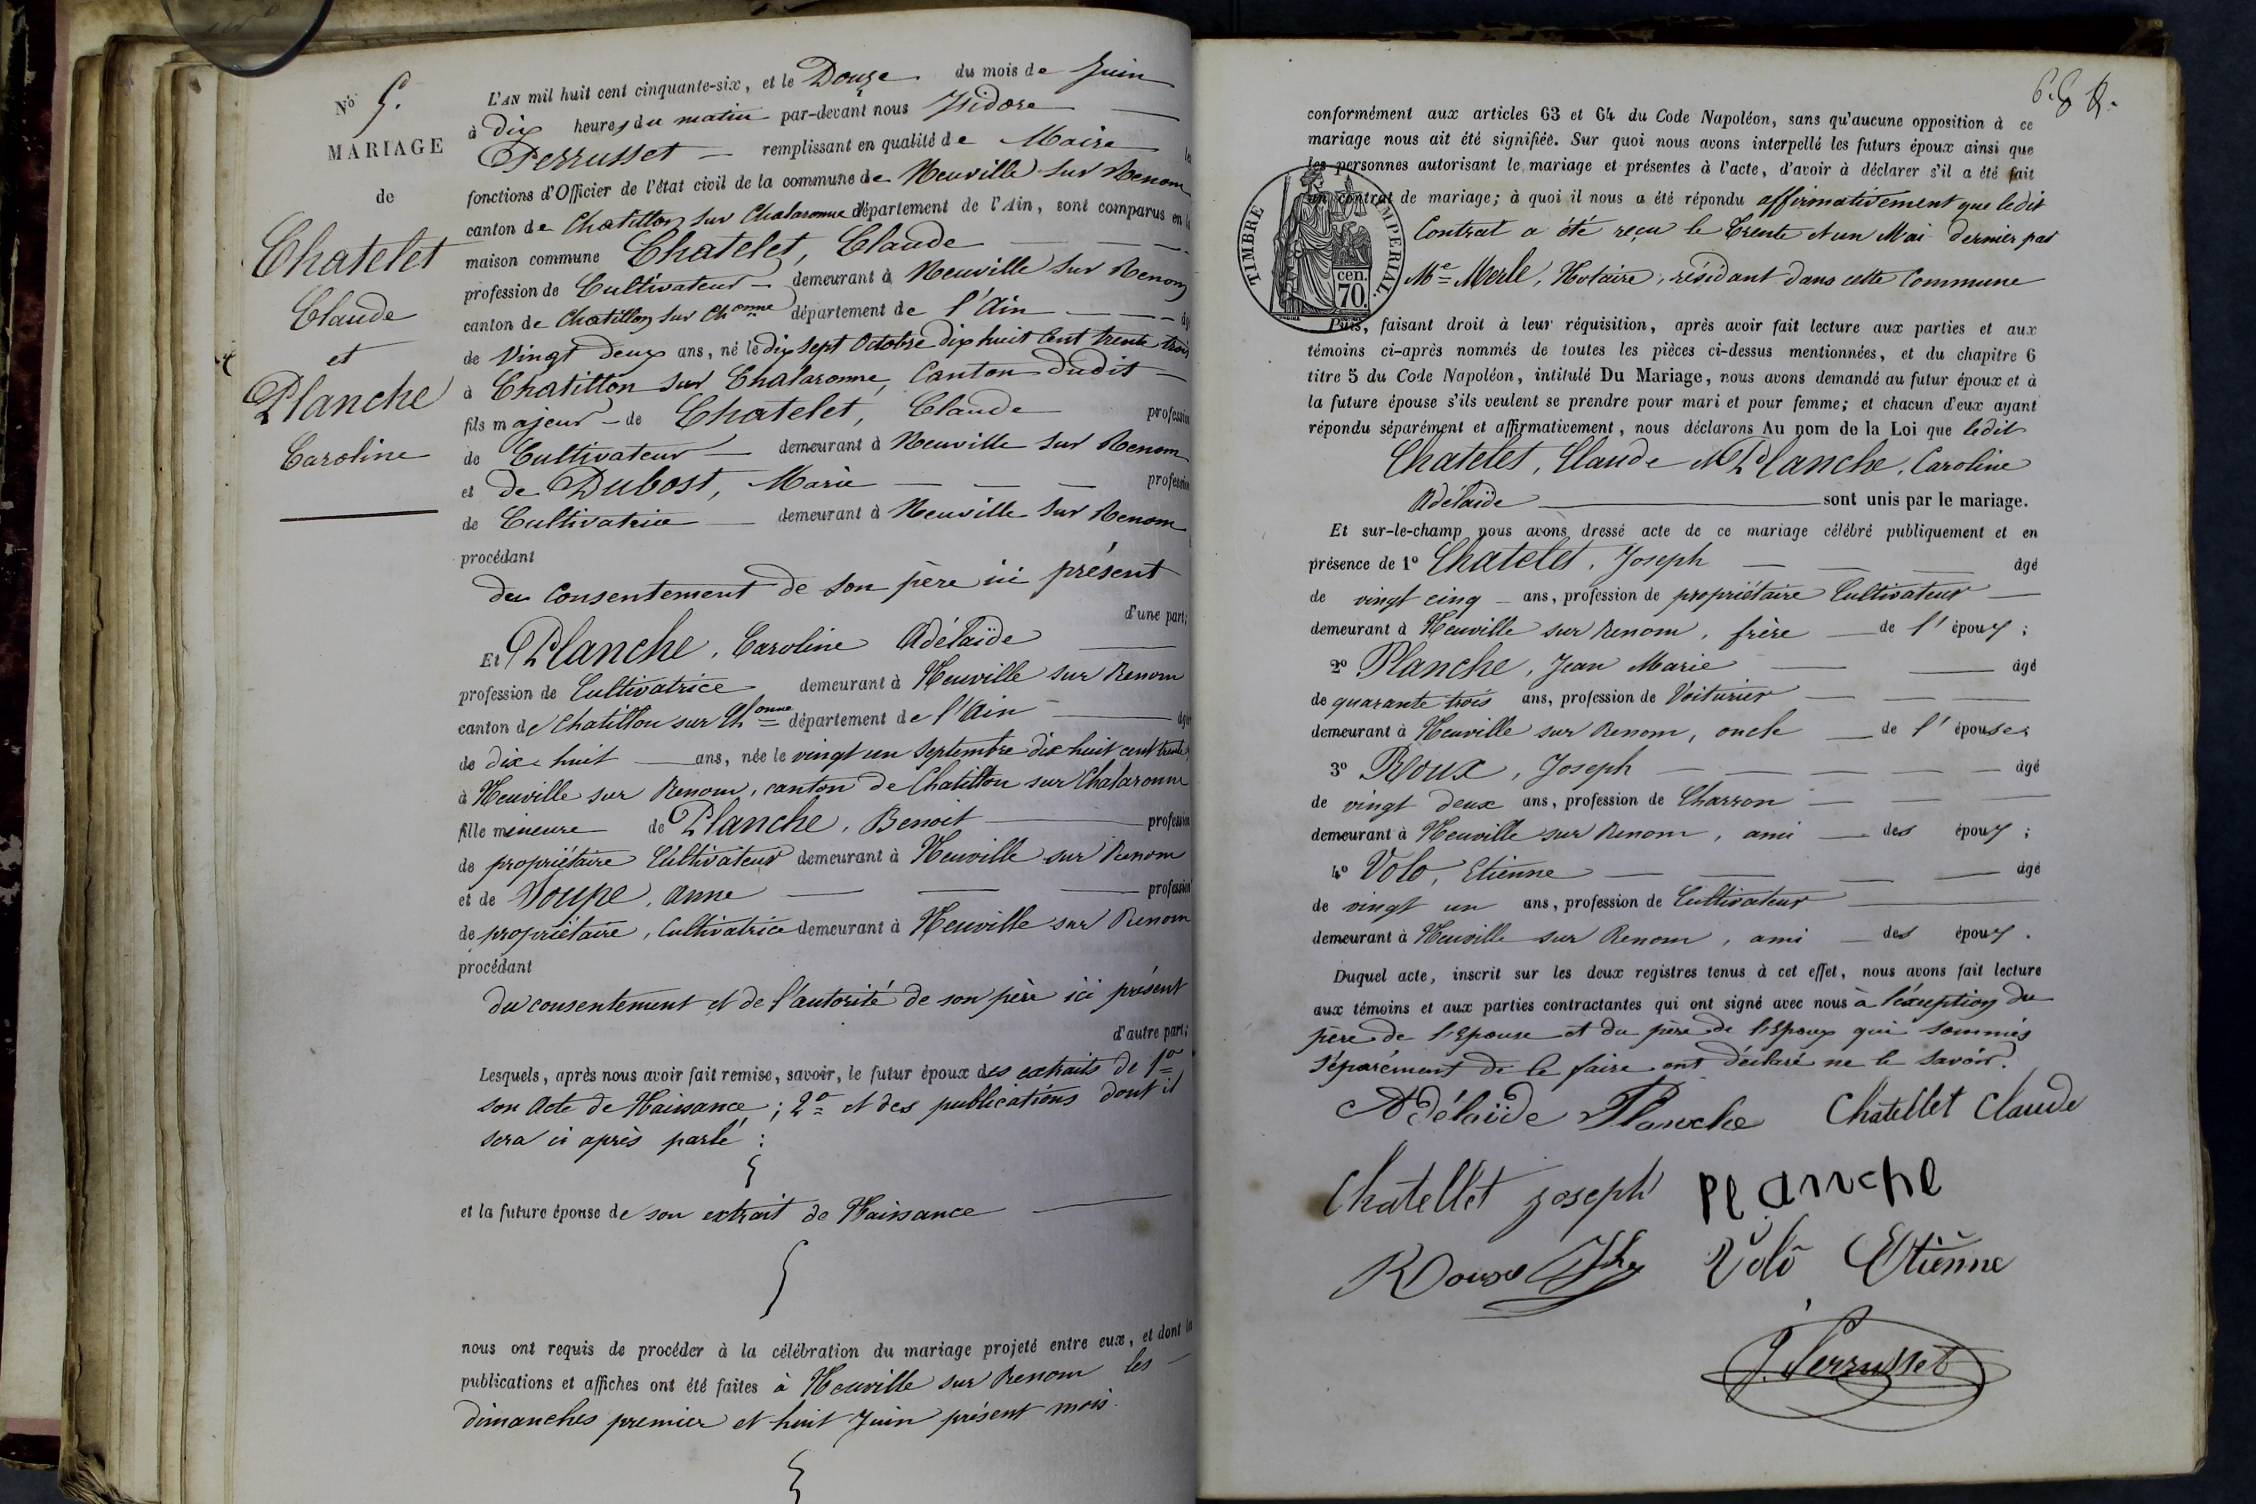 No 5.
MARIAGE
de
Chatelet
Claude
et
Planche
Caroline
L'AN mil huit cent cinquante-six, et le Douze du mois de Juin
à dix heures du matin par-devant nous Isidore
Perrusset remplissant en qualité de Maire les
fonctions d'Officier de l'état civil de la commune de Neuville sur Renom
canton de Chatillon sur Chalaronne département de l'Ain, sont comparus en la
maison commune Chatelet, Claude
profession de Cultivateur demeurant à Neuville sur Renom
canton de Chatillon sur Chonne département de l'Ain âgé
de Vingt deux ans, né le dix sept Octobre dix huit cent trente trois
à Chatillon sur Chalaronne, Canton dudit
fils majeur de Chatelet, Claude profession
de Cultivateur demeurant à Neuville sur Renom
et de Dubost, Marie profession
de Cultivatrice demeurant à Neuville sur Renom
procédant
du consentement de son père ici présent
d'une part;
Et Planche, Caroline Adélaïde
profession de Cultivatrice demeurant à Neuville sur Renom
canton de Chatillon sur Chonne département de l'Ain âgée
de dix huit ans, née le vingt un Septembre dix huit cent trente
à Neuville sur Renom, canton de Chatillon sur Chalaronne
fille mineure de Planche, Benoit profession
de propriétaire Cultivateur demeurant à Neuville sur Renom
et de Soupe, anne profession
de propriétaire, Cultivatrice demeurant à Neuville sur Renom
procédant
du consentement et de l'autorité de son père ici présent
d'autre part;
Lesquels, après nous avoir fait remise, savoir, le futur époux des extraits de 1o
son Acte de Naissance; 2o et des publications dont il
sera ci après parlé:
et la future épouse de son extrait de Naissance
nous ont requis de procéder à la célébration du mariage projeté entre eux, et dont les
publications et affiches ont été faites à Neuville sur Renom les
dimanches premier et huit Juin présent mois.
conformément aux articles 63 et 64 du Code Napoléon, sans qu'aucune opposition à ce
mariage nous ait été signifiée. Sur quoi nous avons interpellé les futurs époux ainsi que
les personnes autorisant le mariage et présentes à l'acte, d'avoir à déclarer s'il a été fait
un contrat de mariage; à quoi il nous a été répondu affirmativement que ledit
Contrat a été reçu le trente et un Mai dernier par
Me Merle, Notaire, résidant dans cette Commune
TIMBRE IMPERIAL.
cen.
70.
Puis, faisant droit à leur réquisition, après avoir fait lecture aux parties et aux
témoins ci-après nommés de toutes les pièces ci-dessus mentionnées, et du chapitre 6
titre 5 du Code Napoléon, intitulé Du Mariage, nous avons demandé au futur époux et à
la future épouse s'ils veulent se prendre pour mari et pour femme; et chacun d'eux ayant
répondu séparément et affirmativement, nous déclarons Au nom de la Loi que ledit
Chatelet, Claude et Planche, Caroline
Adélaïde sont unis par le mariage.
Et sur-le-champ nous avons dressé acte de ce mariage célébré publiquement et en
présence de 1o Chatelet, Joseph âgé
de vingt cinq ans, profession de propriétaire Cultivateur
demeurant à Neuville sur Renom, frère de l'époux;
2o Planche, Jean Marie âgé
de quarante trois ans, profession de Voiturier
demeurant à Neuville sur Renom, oncle de l'épouse;
3o Roux, Joseph âgé
de vingt deux ans, profession de Charron
demeurant à Neuville sur Renom, ami des époux;
4o Volo, Etienne âgé
de vingt un ans, profession de Cultivateur
demeurant à Neuville sur Renom, ami des époux.
Duquel acte, inscrit sur les deux registres tenus à cet effet, nous avons fait lecture
aux témoins et aux parties contractantes qui ont signé avec nous à l'éxception du
père de l'Epouse et du père de l'Epoux qui sommés
séparément de le faire ont déclaré ne le savoir.
Adélaïde Planche Chatellet Claude
Chatellet joseph planche
Roux Jh Volo Etienne
J. Perrusset